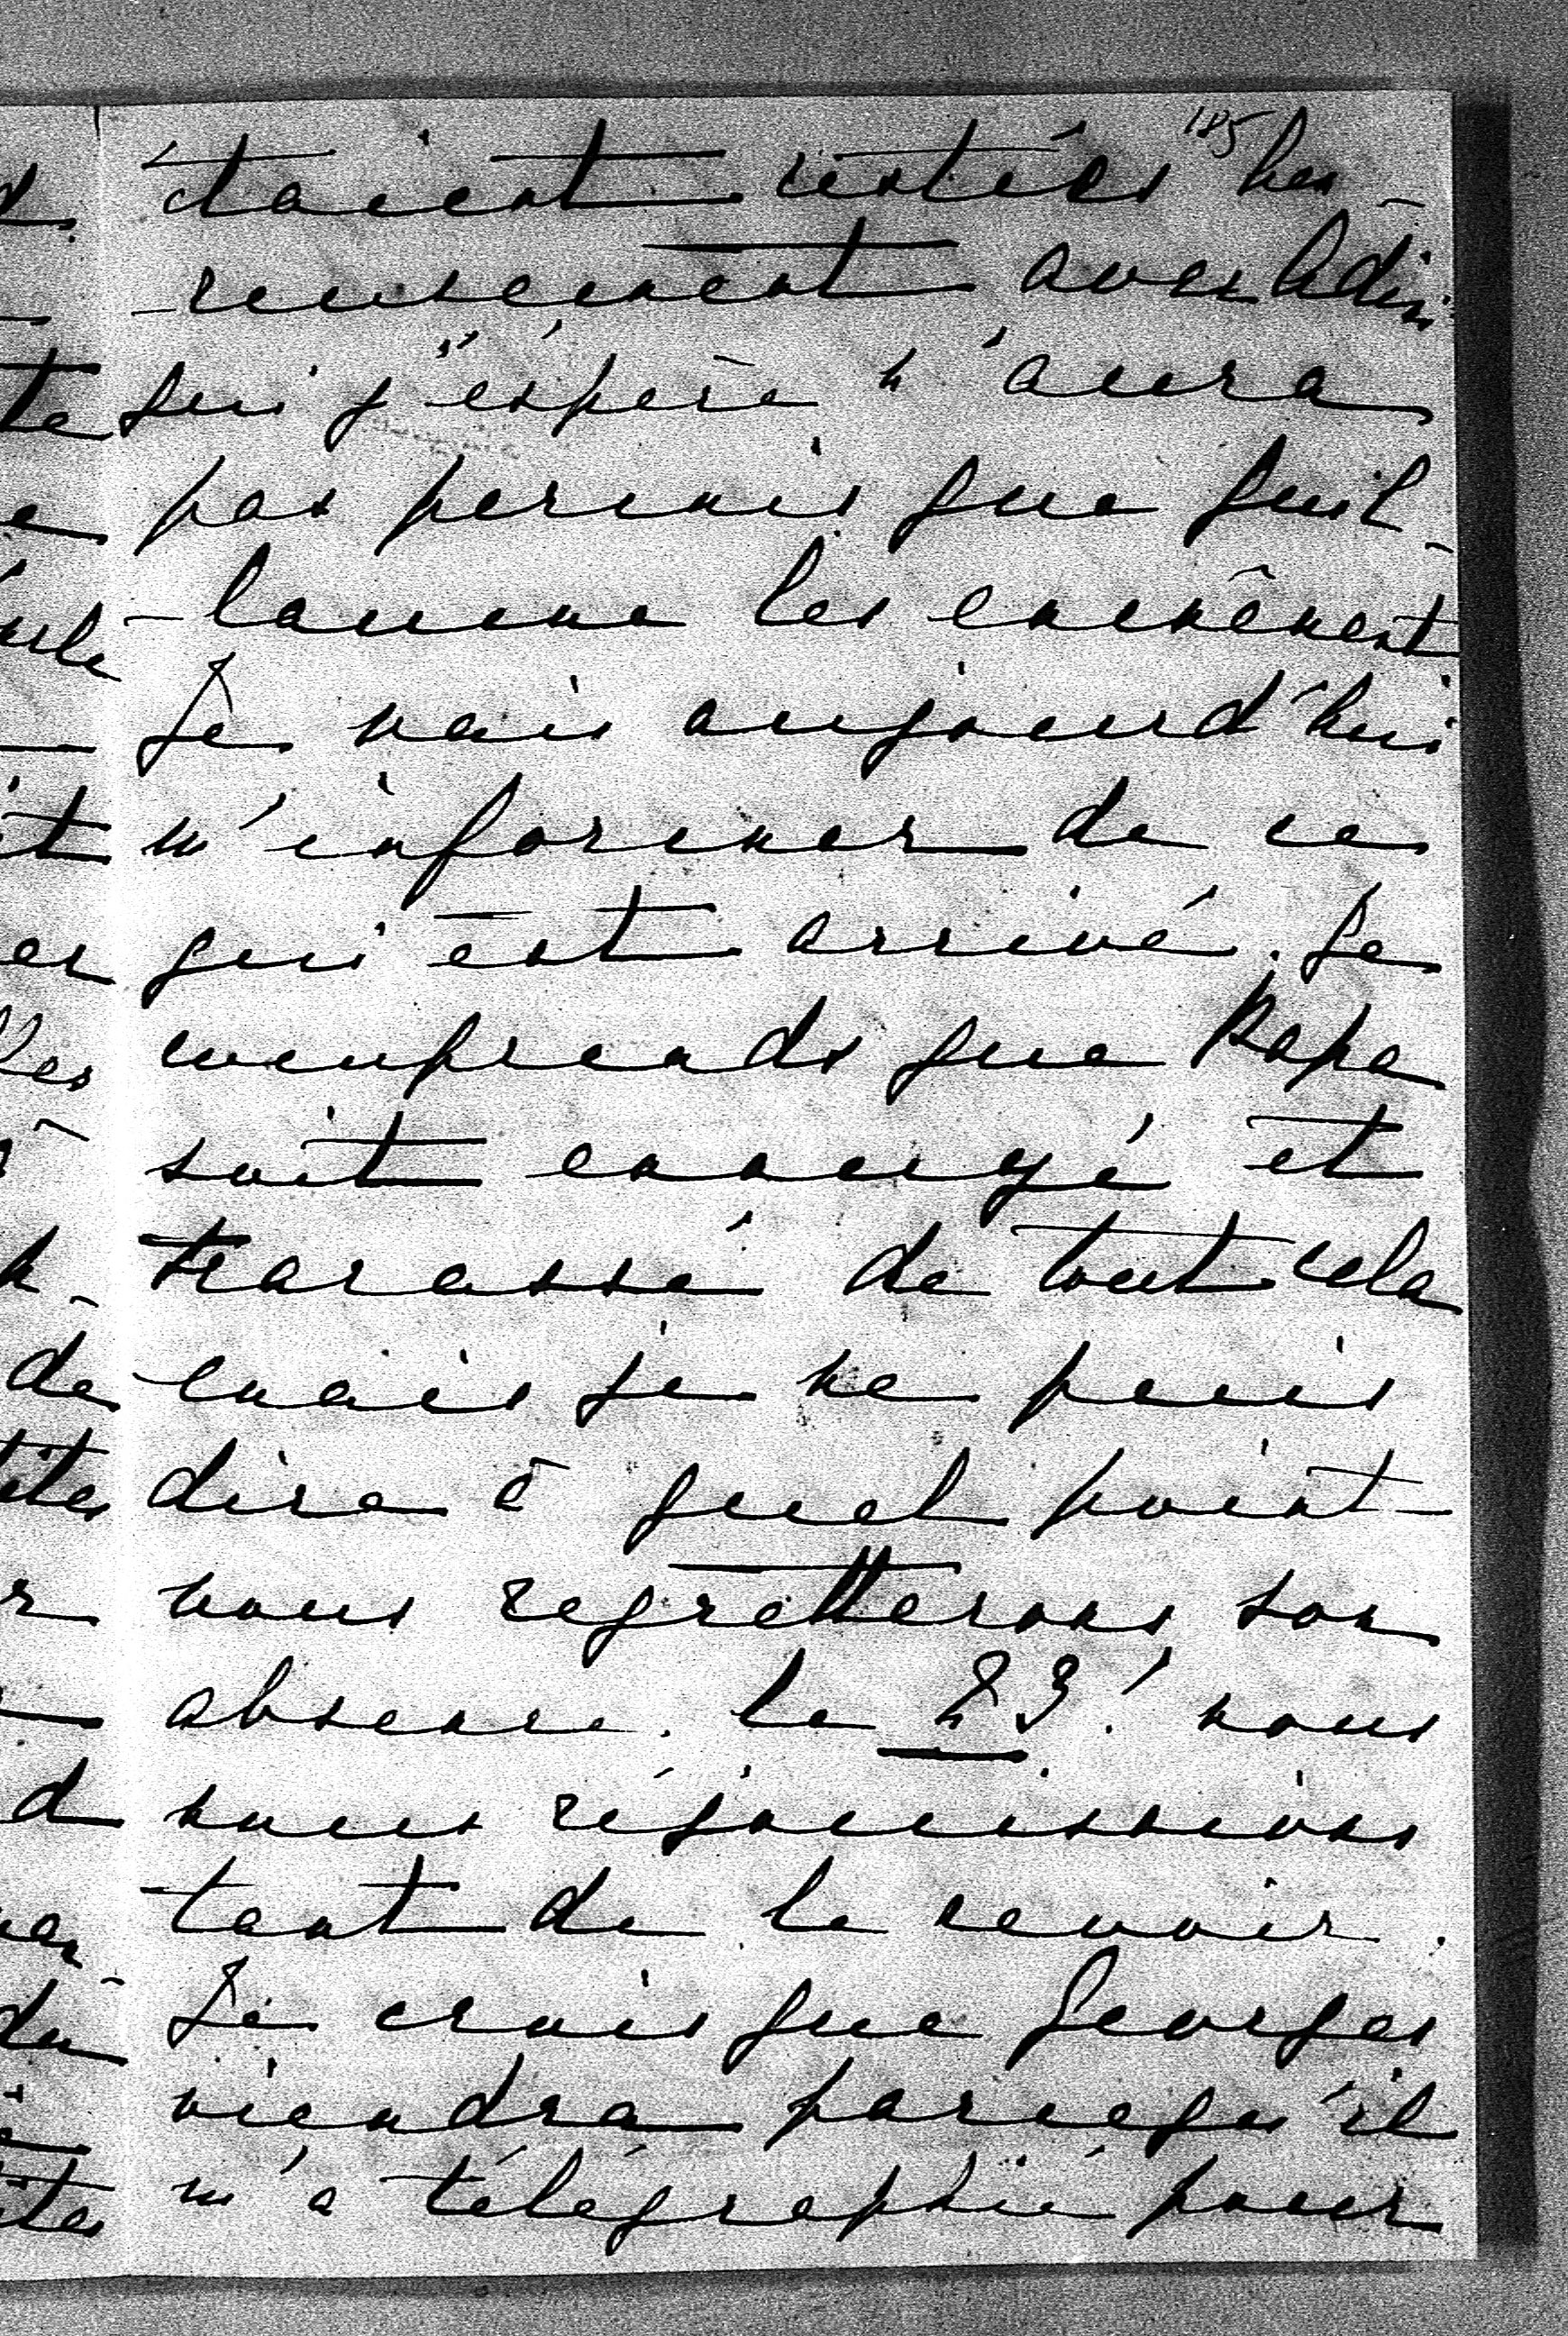 185
étaient restées heu-
-reusement avec Adin
qui j'éspère n'aura
pas permis que Guil-
-laume les emmênent
Je vais aujourd'hui
m'informer de ce
qui est arrivé. Je
comprends que Papa
soit ennuyé et
tracassé de tout cela
mais je ne puis
dire à quel point
nous regretterons son
absence. le 23! nous
nous réjouissions
tant de le revoir.
Je crois que Georges
viendra parcequ'il
m'a télégraphié pour